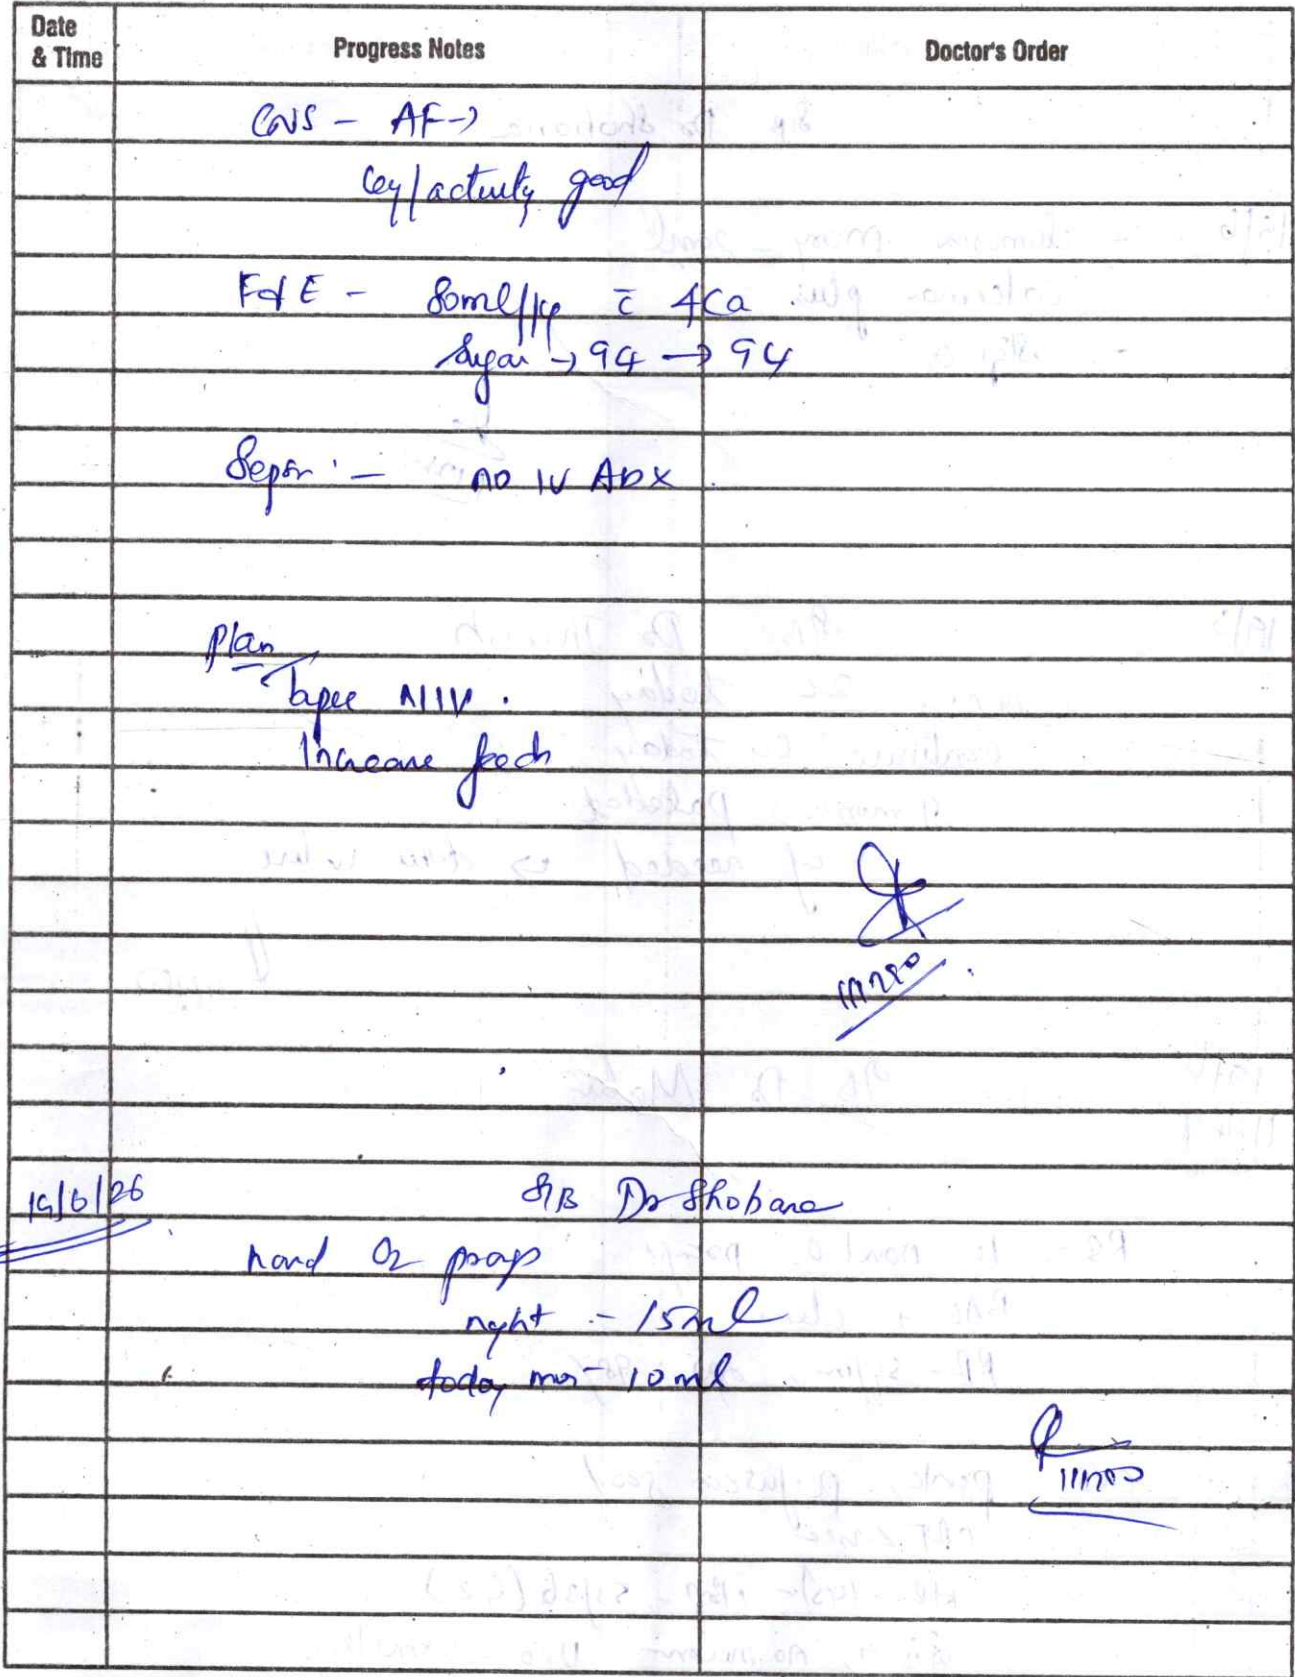 Date & Time Progress Notes Doctor's Order
CNS - AF →
Cry/activity good
F & E - 80ml/kg c̄ 4Ca.
Sugar → 94 → 94
Sepsis - no IV Abx.
Plan
Taper NIV.
Increase feeds
111720
19/6/26 S/B Dr Shobana
O2 prongs
night - 15ml
today mor - 10ml.